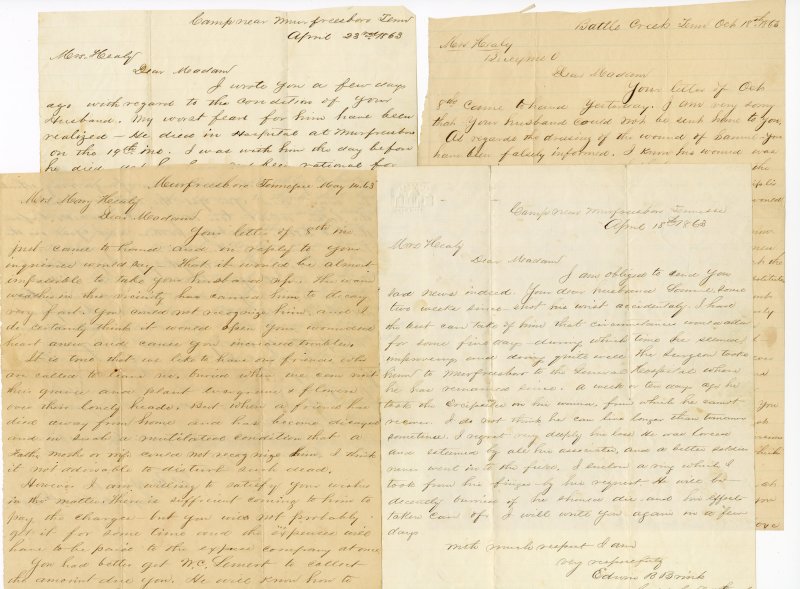 Camp near Murfreesboro Tenn
April 23rd 1863
Mrs. Healy
Dear Madam
I wrote you a few days
ago with regard to the condition of your
Husband. My worst fears for him have been
realized – He died in Hospital at Murfreesboro
on the 19th inst. I was with him the day before
he died
Battle Creek Tenn Oct 18th 1863
Mrs Healy
O
Dear Madam
Your letter of Oct
8th came to hand yesterday. I am very sorry
that your husband could not be sent home to you.
As regards the dressing of the wound of Samuel you
have been falsely informed. I know his wound was
the
Murfreesboro Tennessee May 14. 63
Mrs Mary Healy
Dear Madam
Your letter of 8th inst
came to hand and in reply to your
inquiries would say – that it would be almost
impossible to take your husband up. The warm
weather in this vicinity has caused him to decay
very fast. You could not recognize him, and I
do certainly think it would open your wounded
heart anew and cause you increased troubles.
It is true that we like to have our friends who
are called to leave us, buried where we can visit
their graves and plant evergreens & flowers
over their lonely heads. But when a friend has
died away from home and has become
and in such a mutilated condition that a
Father mother or wife could not recognize him, I think
it not advisable to disturb such dead.
However I am willing to satisfy your wishes
in the matter. There is sufficient coming to him to
pay the charges but you will not probably
get it for some time and the expenses will
have to be paid to the express company at once
You had better get W.C. Lemert to collect
the amount due you. He will know how to
Camp near Murfreesboro Tennessee
April 18th 1863
Mrs Healy
Dear Madam
I am obliged to send you
sad news indeed. Your dear husband Samuel some
two weeks since shot his wrist accidentally. I had
the best care taken of him that circumstances would allow
for some five days during which time he seemed
improving and doing quite well. The Surgeon took
him to Murfreesboro to the General Hospital where
he has remained since. A week or ten days ago he
took the Erysipelas in his wound, from which he cannot
recover. I do not think he can live longer than tomorrow
sometime. I regret very deeply his loss. He was loved
and esteemed by all his associates and a better soldier
never went into the field. I enclose a ring which I
took from his finger by his request. He will be
decently buried if he should die and his effects
taken care of. I will write you again in a few
days
With much respect I am
very respectfully
Edwin B Brink